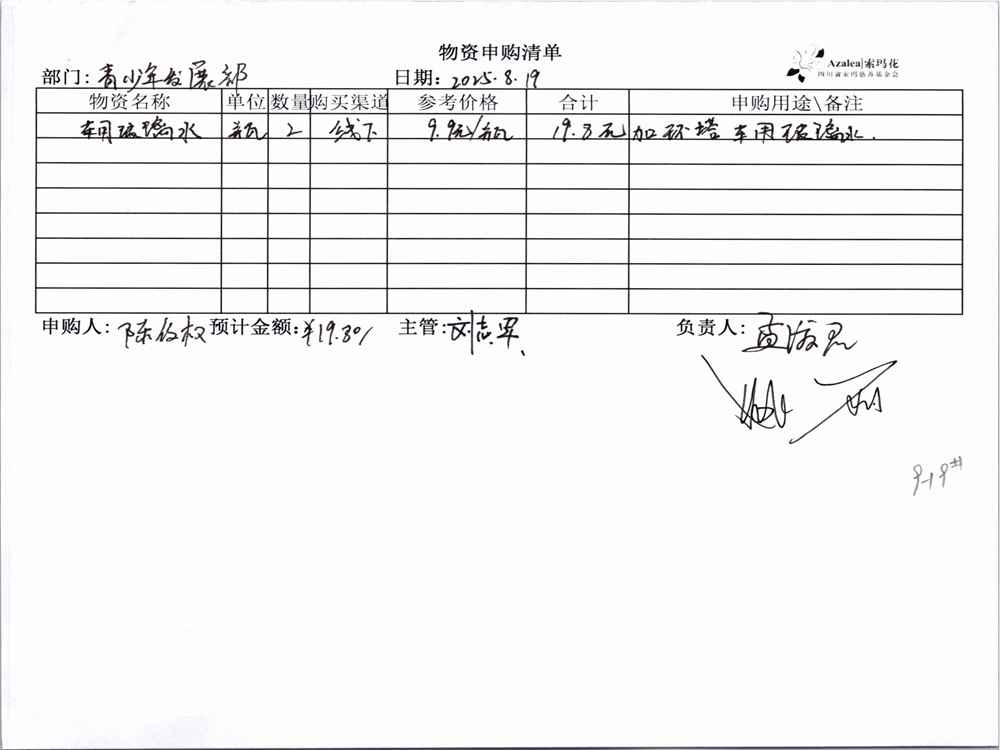 物资申购清单
Azalea|索玛花
四川省索玛慈善基金会
部门：青少年发展部 日期：2025.8.19
物资名称 单位 数量 购买渠道 参考价格 合计 申购用途\备注
车用玻璃水 瓶 2 线下 9.9元/瓶 19.8元 加 车用玻璃水.
申购人： 预计金额：¥19.80/ 主管：刘志军、 负责人：
9-19#